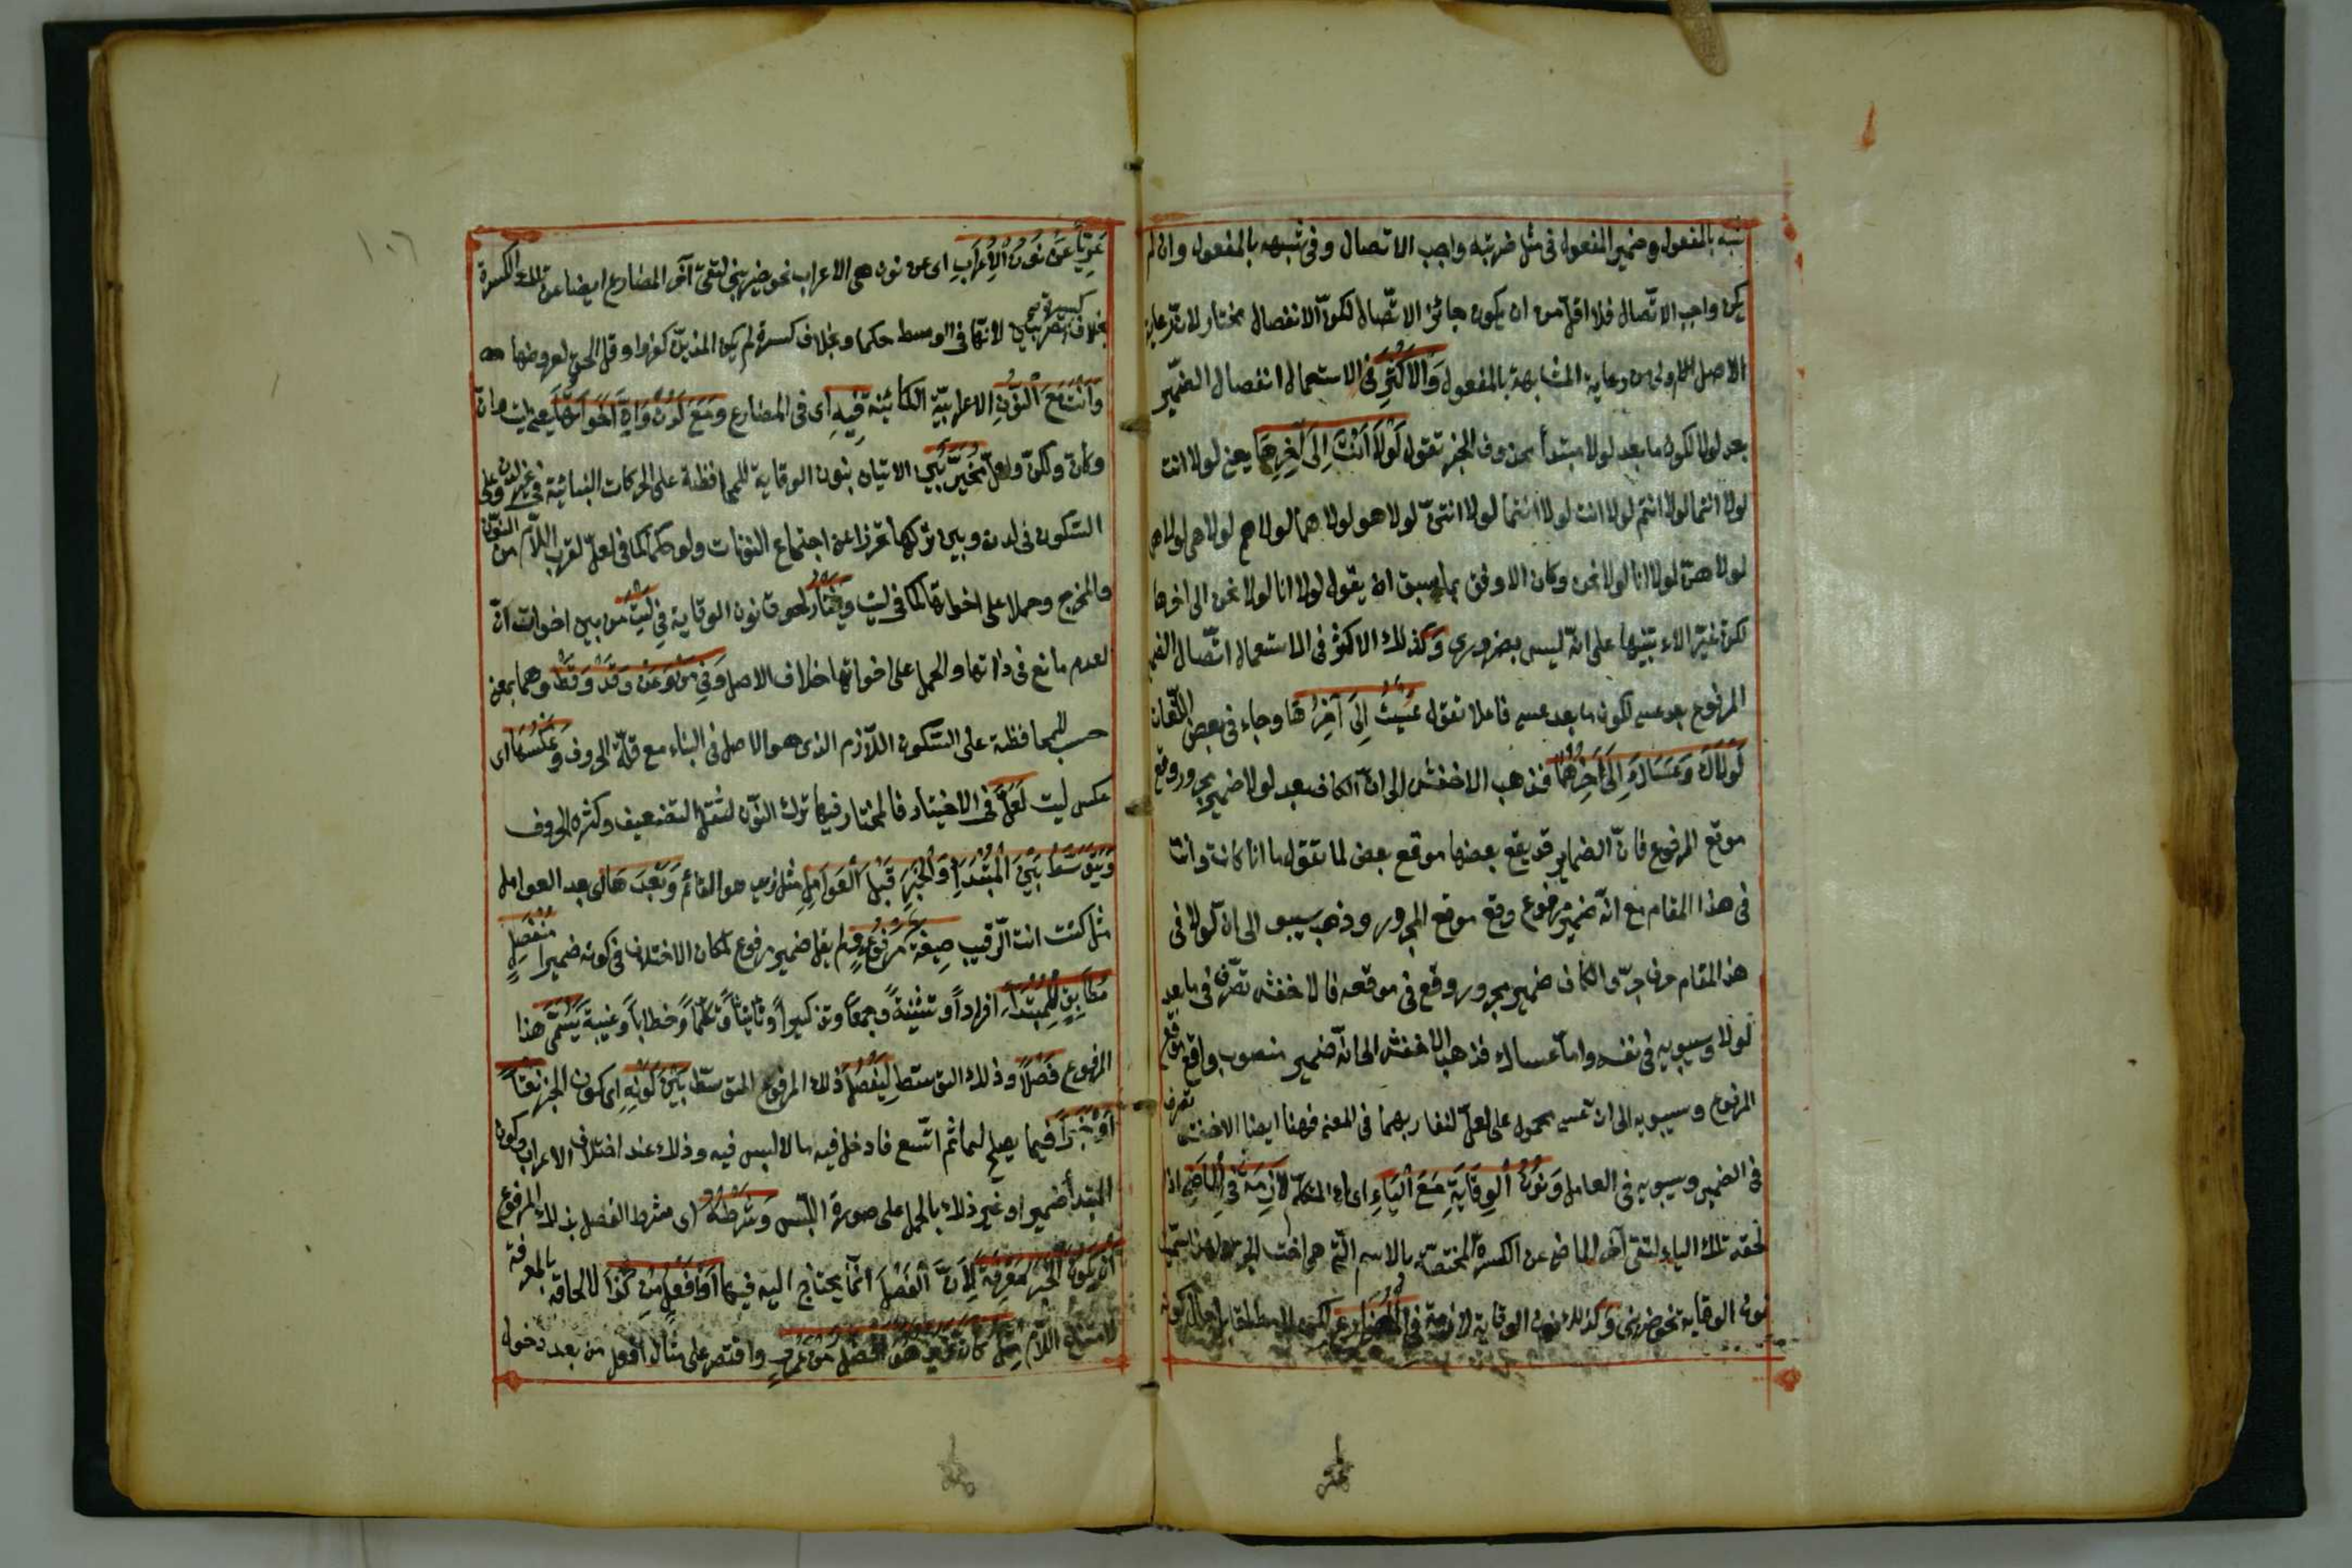 شبه بالمفعول وضمير المفعول فى مثل ضربته واجب الاتصال وفى شبهه بالمفعول وان لم
يكن واجب الاتّصال فلا اقلّ من ان يكون جائز الاتّصال لكونّ الانفصال مختار لانّ رعاية
الاصل اولى من رعاية المشابهة بالمفعول وَالْاَكْثَرُ فى الاستعمال انفصال الضمّير
بعد لولا لكون ما بعد لولا مبتدأ محذوف الخبر تقول لَوْلَا اَنْتَ اِلَى آخِرِهَا يعنى لولا انت
لولا انتما لولا انتم لولا انت لولا انتما لولا انتنّ لولا هو لولا هما لولا هم لولا هى لولا هما
لولا هنّ لولا انا لولا نحن وكان الاوفق بما سبق ان يقول لولا انا لولا نحن الى اخرها
لكنّه غيّر الاء تنبيها على انّه ليس بضرورى وَكذلك الاكثر فى الاستعمال اتّصال الضمير
المرفوع بعد عسى لكون ما بعد عسى فاعلا تقول عَسَيْتُ اِلَى آخِرِهَا وجاء فى بعض اللّغات
لَوْلَاكَ وَعَسَاكَ اِلَى آخِرِهِمَا فذهب الاخفش الى انّ الكاف بعد لولا ضمير مجرور وقع
موقع المرفوع فانّ الضماير قد يقع بعضها موقع بعض كما تقول ما انا كانت وانت
فى هذا المقام مع انّه ضمير مرفوع وقع موقع المجرور وذهب سيبو الى ان لولا فى
هذا المقام حرف جرّ والكاف ضمير مجرور وقع فى موقعه فالاخفش تصّرف فى ما بعد
لولا وسيبويه فى نفسه وامّا عساك فذهب الاخفش الى انّه ضمير منصوب واقع موقع
المرفوع وسيبويه الى ان عسى محمول على لعلّ لتقاربهما فى المعنى فههنا ايضا الاخفش تصرف
فى الضمير وسيبويه فى العامل وَنُونُ الْوِقَايَةِ مَعَ الْيَاءِ اى ياء المتكلّم لَازِمَةٌ فِى الْمَاضِى اذا
لحقه تلك الياء لتقى آخر الماضى عن الكسرة المختصّة بالاسم الّتى هى اخت الجرّ ولهذا سمّيت
نون الوقاية نحو ضربنى وَكذلك نون الوقاية لازمة فى الْمُضَارِعِ لكن لا مطلقا بل حال كونه
عَرِيّاً عَنْ نُونِ الْاِعْرَابِ اى عن نون هى الاعراب نحو يضربنى لتقى آخر المضارع ايضا عن تلك الكسرة
بخلاف كسرة تضربين لانّها فى الوسط حكما وبخلاف كسرة لم يكن الذين كفروا وقل الحق لعروضها
وَاَنْتَ مَعَ النُّونِ الاعرابيّة الكائنة فِيْهِ اى فى المضارع وَمَعَ لَدُنْ وَاِنَّ وَاَخَوَاتِهَا يعنى ليت وانّ
وكانّ ولكنّ ولعلّ مُخَيَّرٌ بين الاتيان بنون الوقاية للمحافظة على الحركات البنائية فى غير لدن وعلى
السّكون فى لدن وبين تركها تحرّزا عن اجتماع النونات ولو حكما كما فى لعلّ لقرب اللّام من النّون
فى المخرج وحملا على اخواتها كما فى ليت وَيُخْتَارُ لحوق نون الوقاية فى لَيْتَ من بين اخوات انّ
لعدم مانع فى ذاتها والحمل على اخواتها خلاف الاصل وَفِى مِنْ وَعَنْ وَقَدْ وَقَطْ وهما بمعنى
حسب للمحافظة على السّكون اللّازم الذى هو الاصل فى البناء مع قلّة الحروف وَعَكْسُهَا اى
عكس ليت لَعَلَّ فى الاختيار فالمختار فيها ترك النّون لثقل التّضعيف وكثرة الحروف
وَيَتَوَسَّطُ بَيْنَ الْمُبْتَدَإِ وَالْخَبَرِ قَبْلَ الْعَوَامِلِ مثل زيد هو القائم وَبَعْدَهَا اى بعد العوامل
مثل كنت انت الرّقيب صِيغَةُ مَرْفُوعٍ ولم يقل ضمير مرفوع لمكان الاختلاف فى كونه ضميرا مُنْفَصِلٍ
مُطَابِقٍ لِلْمُبْتَدَإِ افراداً وتثنيةً وجمعاً وتذكيراً وتأنيثاً وتكلّماً وخطاباً وغيبةً يُسَمَّى هذا
المرفوع فَصْلًا وذلك التوسّط لِيَفْصِلَ ذلك المرفوع المتوسّط بَيْنَ كَوْنِهِ اى كون الخبر نَعْتاً
اَوْ خَبَراً فيما يصلح لهما ثم اتّسع فادخل فيه ما لا لبس فيه وذلك عند اختلاف الاعراب وكون
المبتدأ ضميرا او غير ذلك بالحمل على صورة اللّبس وَشَرْطُهُ اى شرط الفصل بذلك المرفوع
اَنْ يَكُونَ الْخَبَرُ مَعْرِفَةً لِاَنَّ الْفَصْلَ انّما يحتاج اليه فيها اَوْ اَفْعَلَ مِنْ كَذَا لالحاقه بالمعرفة
لامتناع اللّام مِثْلُ كَانَ زَيْدٌ هُوَ اَفْضَلَ مِنْ عَمْرٍو واقتصر على مثال افعل من بعد دخول
١٠٦